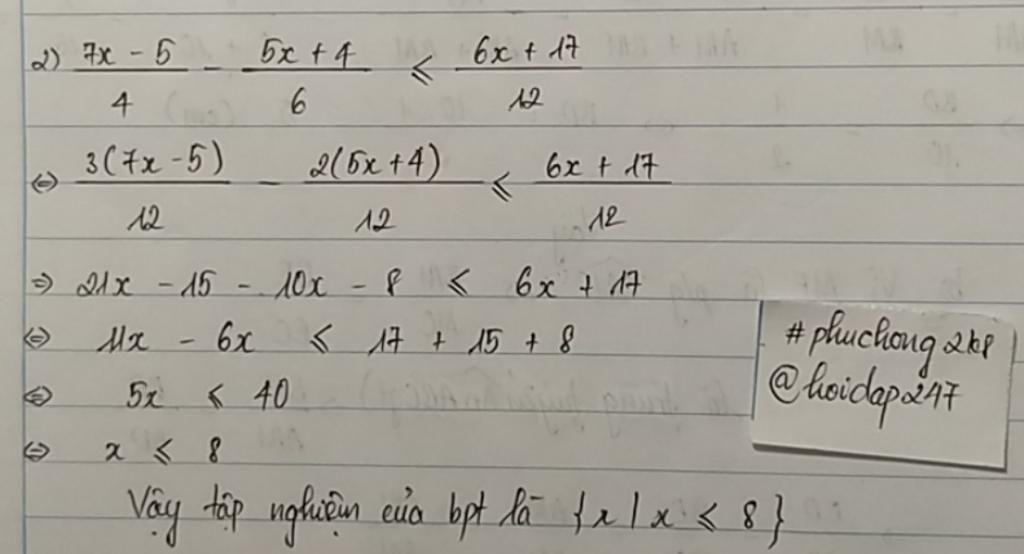 2) (7x - 5)/4 - (5x + 4)/6 ≤ (6x + 17)/12
⇔ 3(7x - 5)/12 - 2(5x + 4)/12 ≤ (6x + 17)/12
⇒ 21x - 15 - 10x - 8 ≤ 6x + 17
⇔ 11x - 6x ≤ 17 + 15 + 8
⇔ 5x ≤ 40
⇔ x ≤ 8
Vậy tập nghiệm của bpt là {x / x ≤ 8}
#phuchong2k8
@hoidap247